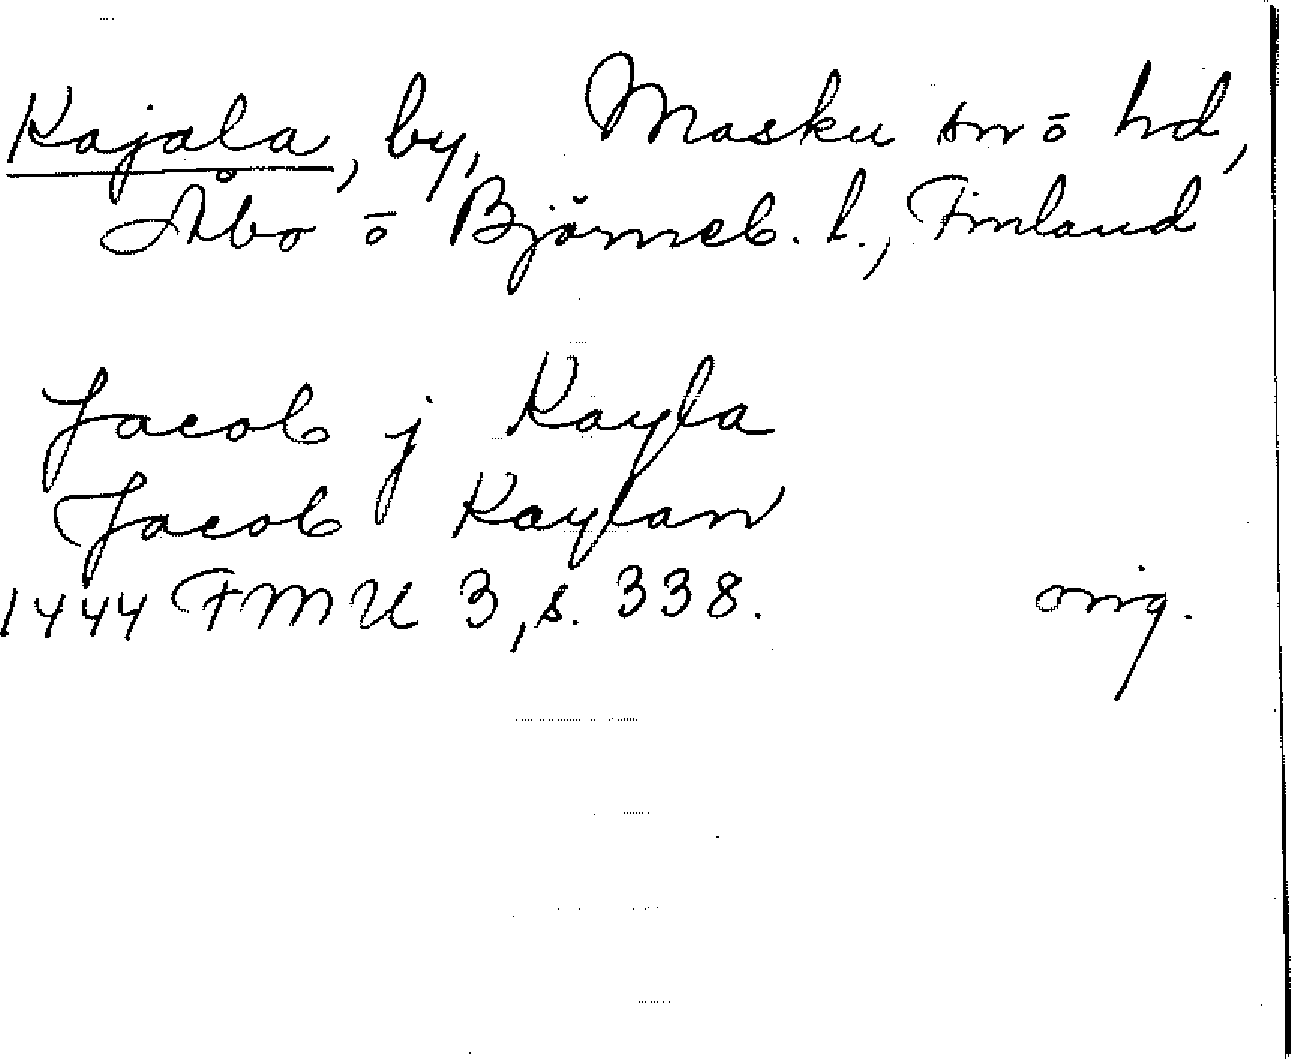 Kajala, by, Masku sn ō hd,
Åbo ō Björneb. l., Finland
Jacob j Kayla
Jacob Kaylan
1444 FMU 3, s. 338. orig.